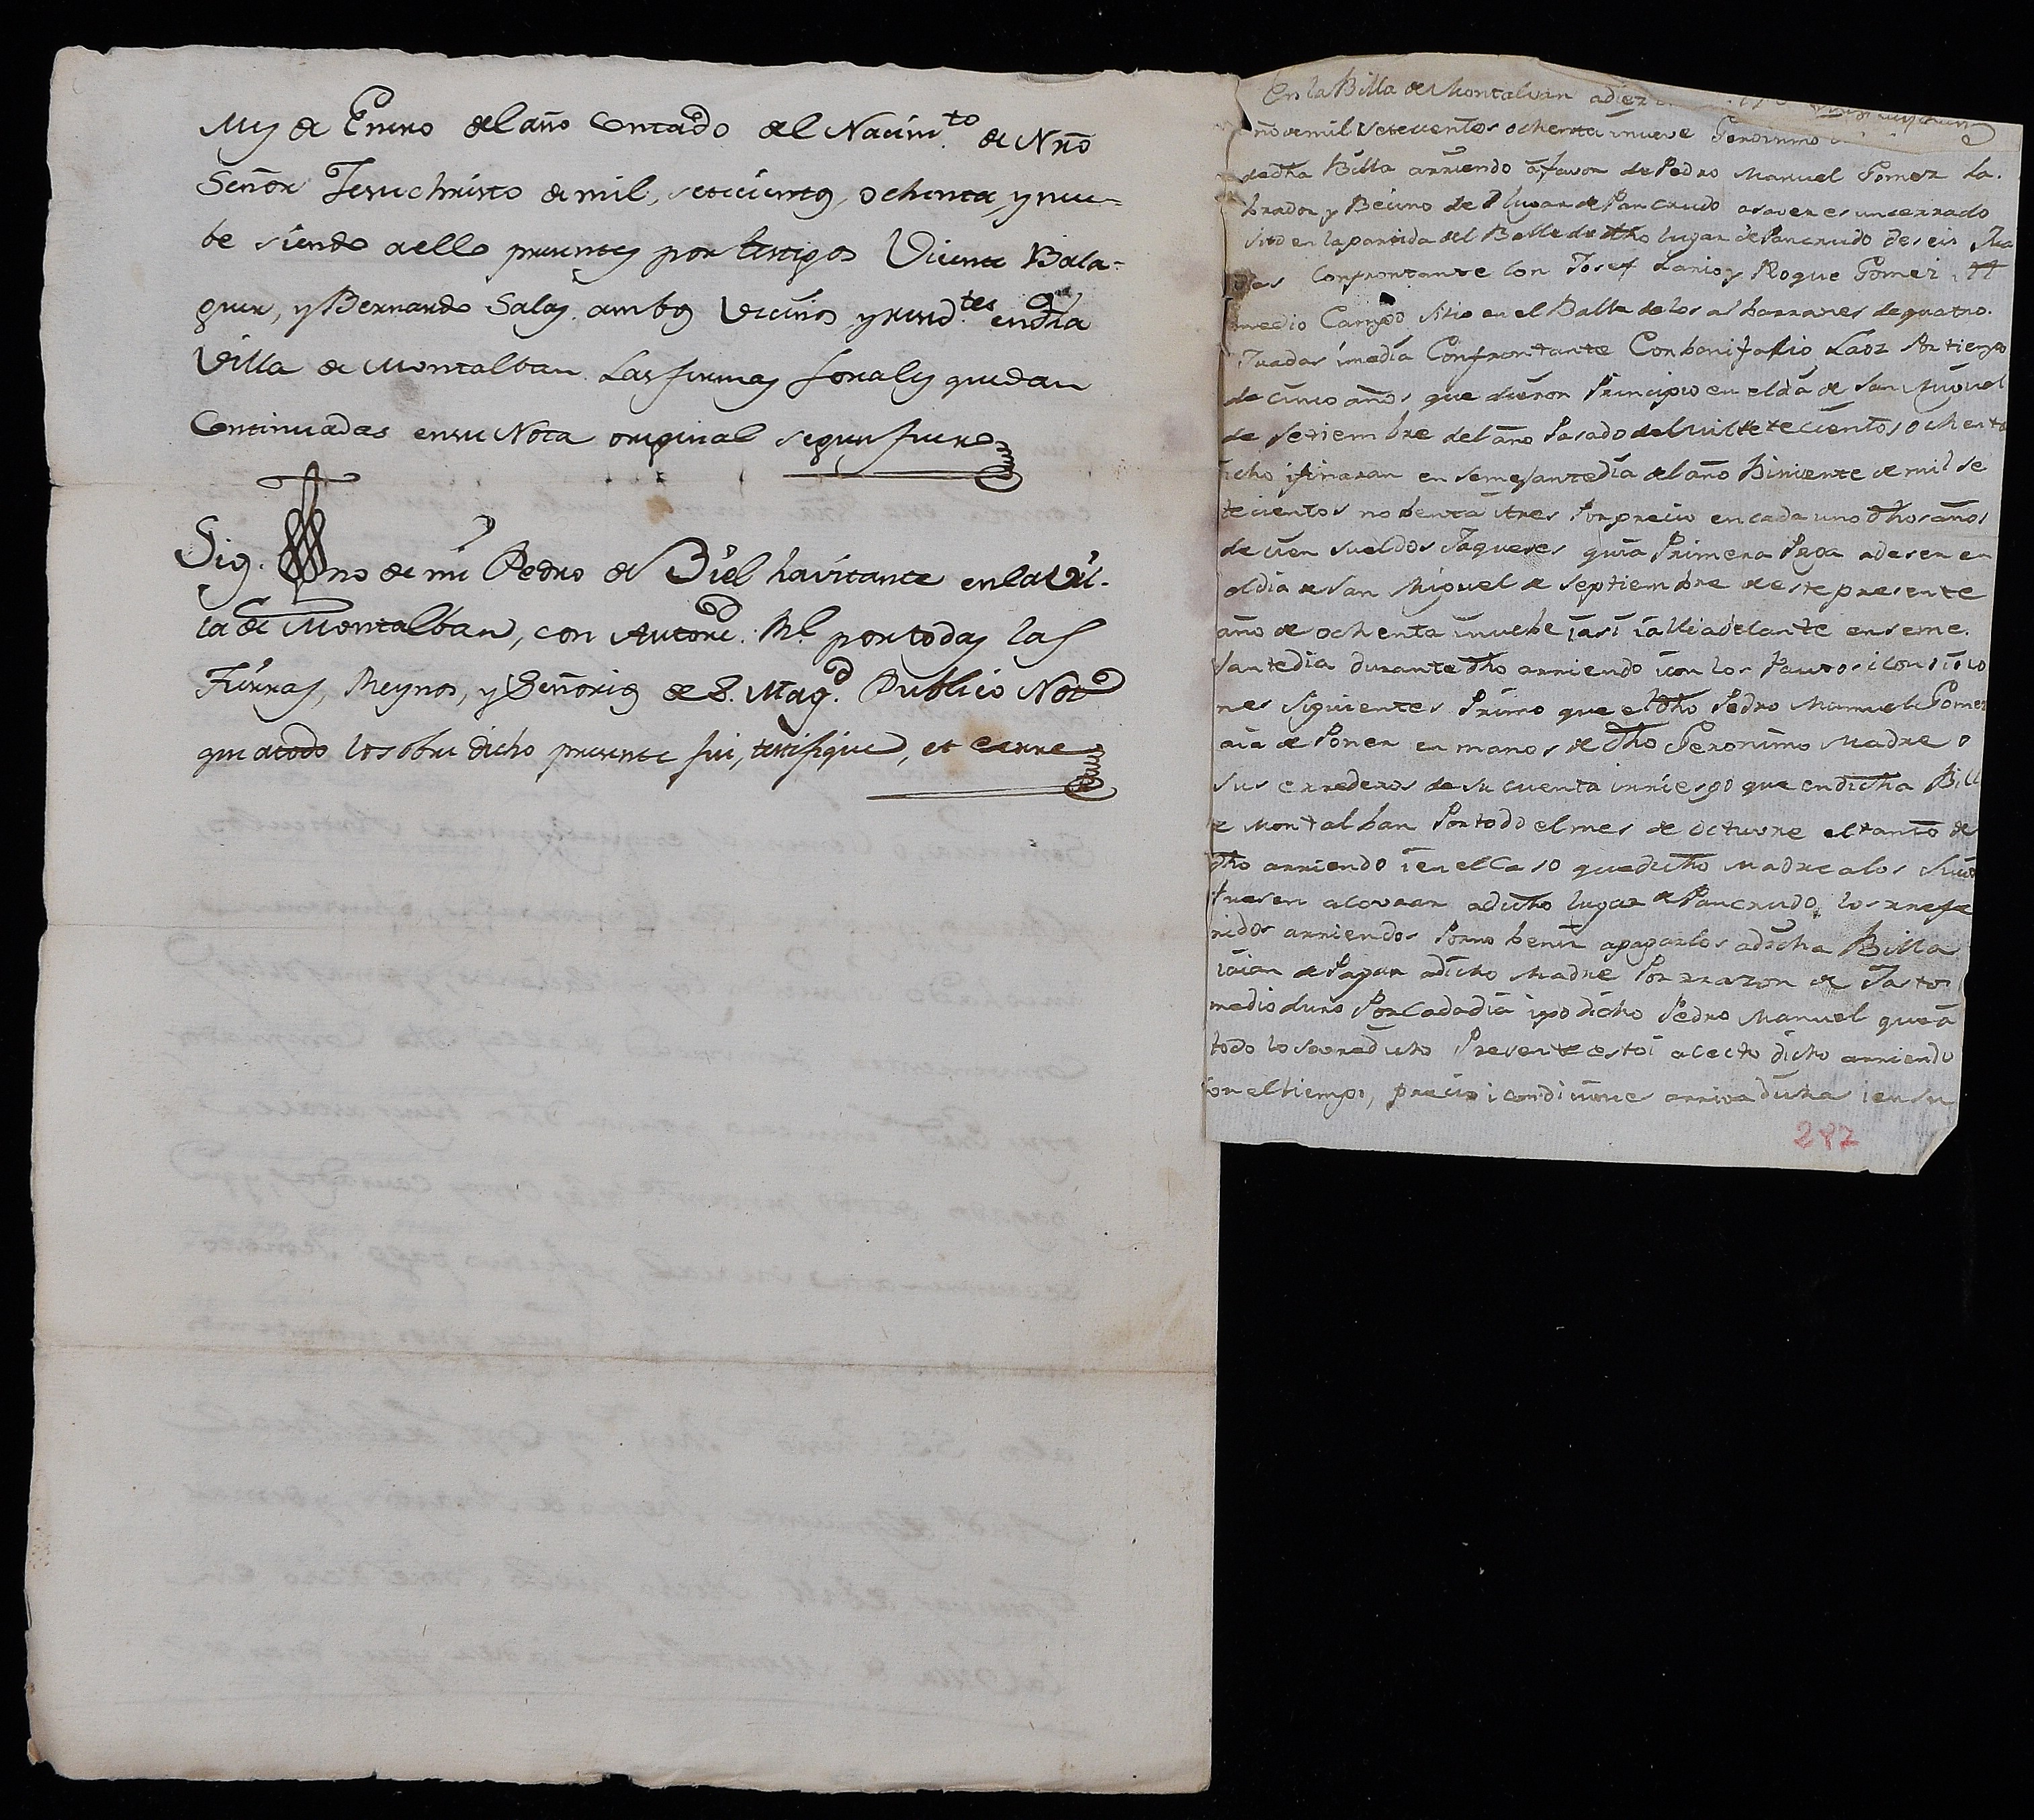 Mes de Enero del año contado del Nacim.to de Nrõ
Señor Jesuchristo de mil, setecientos, ochenta, y nue-
be siendo aello presentes por testigos Vicente Bala-
guer, y Bernardo Salas ambos Vecinos y resid.tes en dha
Villa de Montalban. Las firmas forales quedan
Continuadas en su Nota original segun fuero
Sig. no de mi Pedro de Biel havitante en la Vi-
la de Montalban, con Autorid. Rl. por todas las
Tierras, Reynos, y Señorios de S. Magd. Publico Noto
que atodo lo sobre dicho presente fui, testifique, et cerre
En la Billa de Montalvan a diez
año de mil setecientos ochenta inueve Geronimo
de dha Billa arriendo á favor de Pedro Manuel Gomez La.
brador y Becino del lugar de Pancrudo asaver es un cerrado
sito en la partida del Balle de dho lugar de Pancrudo de seis Jua
das Confrontante con Josef Lario y Roque Gomez
medio Campo sitio en el Balle de los albarranes de quatro.
Juadas imedia Confrontante Con bonifasio Laoz Por tiempo
de cinco años que dieron Principio en el dia de San Miguel
de Setiembre del año Pasado de mil setecientos ochenta
icho ifinaran en semejante dia del año Biniente de mil se
tecientos nobenta itres Por precio en cada uno dhos años
de cien sueldos Jaqueses quia Primera Paga a de ser en
el dia de San Miguel de Septiembre de este presente
año de ochenta inuebe iasi ialli adelante en seme.
Jante dia durante dho arriendo icon los Pautos i condicio
nes siguientes Primo que el dho Pedro Manuel Gomez
aia de Poner en manos de dho Geronimo Madre o
sus erederos de su cuenta irriesgo que en dicha Bill
de Montalban Por todo el mes de octuvre el tanto de
dho arriendo i en el Caso que dicho Madre alos suios
fuesen acovrar adicho lugar de Pancrudo los rrefe
ridos arriendos Por no benir apagarlos adicha Billa
iaian de Pagar adicho Madre Por rrazon de Jastos
medio duro Por Cada dia iyo dicho Pedro Manuel que á
todo lo sovredicho Presente estoi acecto dicho arriendo
con el tiempo, precio i condiciones arriva dichas i en su
287